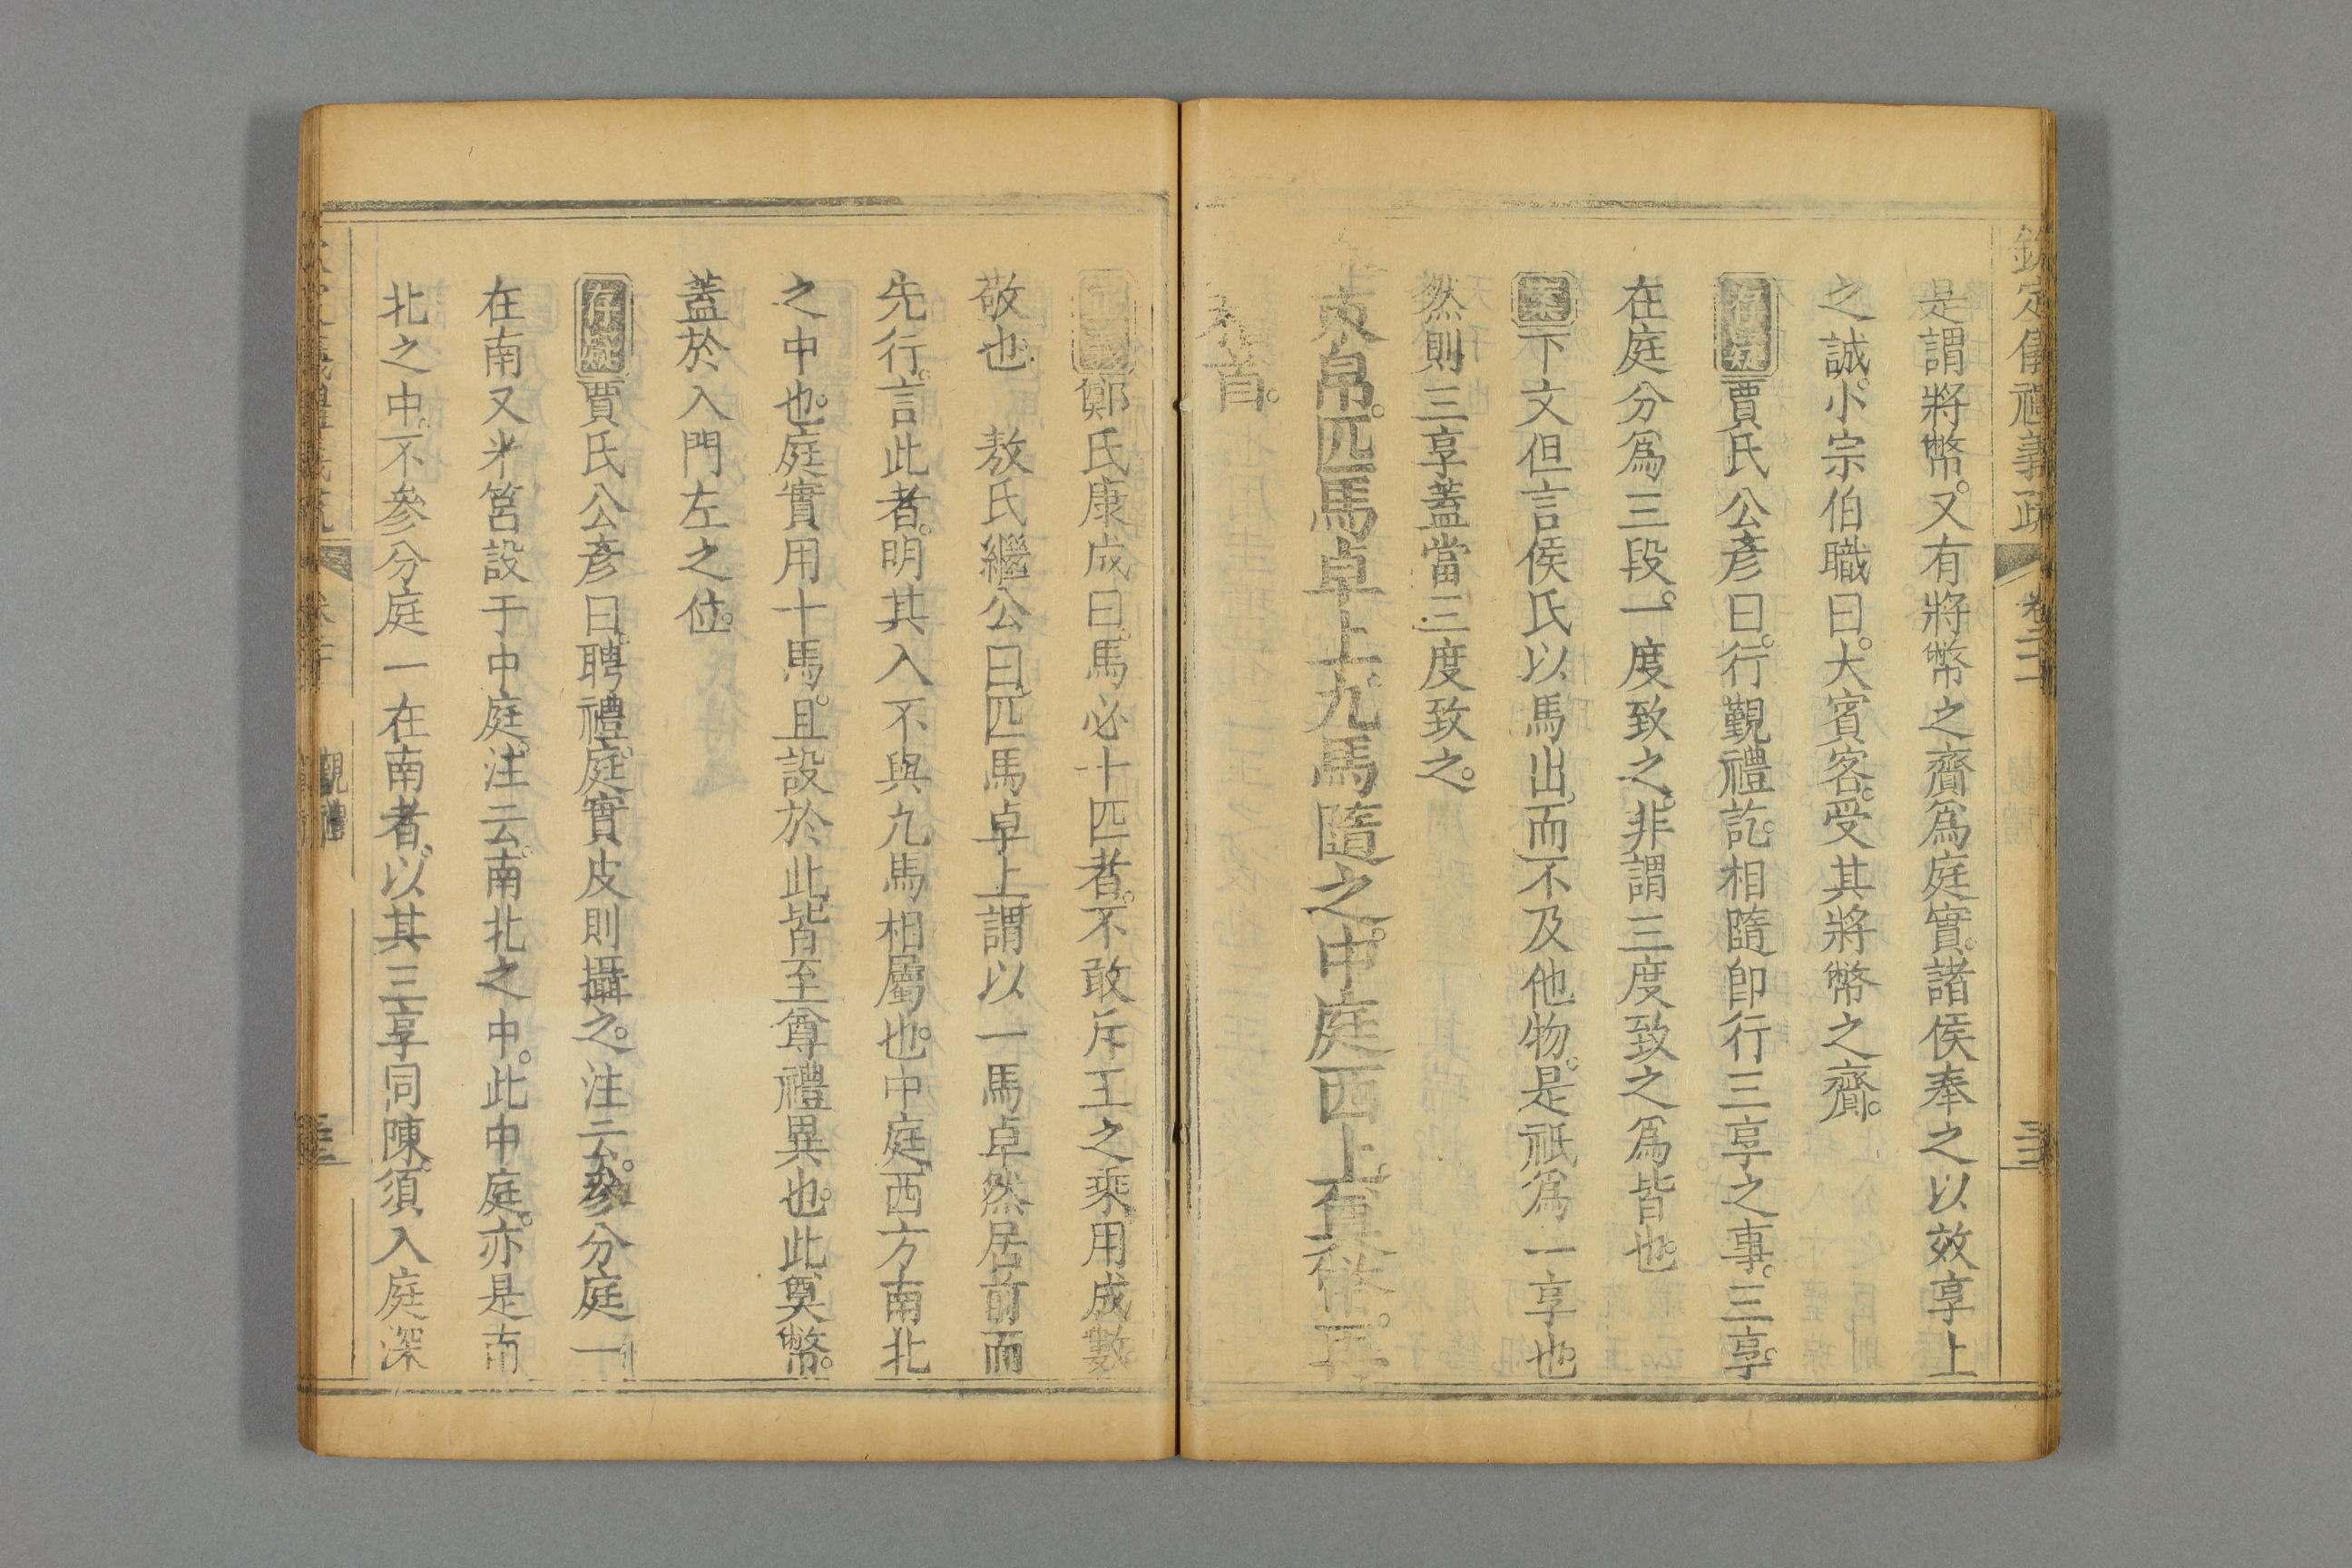 欽定儀禮義疏 卷二十 三三
是謂將幣又有將幣之齎爲庭實諸侯奉之以效享上
之誠小宗伯職曰大賓客受其將幣之齎
存疑賈氏公彥曰行覲禮訖相隨卽行三享之事三享
在庭分爲三段一度致之非謂三度致之爲皆也
案下文但言侯氏以馬出而不及他物是祇爲一享也
然則三享蓋當三度致之
束帛匹馬卓上九馬隨之中庭西上奠幣再
拜首
正義鄭氏康成曰馬必十匹者不敢斥王之乘用成數
敬也 敖氏繼公曰匹馬卓上謂以一馬卓然居前而
先行言此者明其入不與九馬相屬也中庭西方南北
之中也庭實用十馬且設於此皆至尊禮異也此奠幣
蓋於入門左之位
存疑賈氏公彥曰聘禮庭實皮則攝之注云參分庭一
在南又米筥設于中庭注云南北之中此中庭亦是南
北之中不參分庭一在南者以其三享同陳須入庭深
覲禮